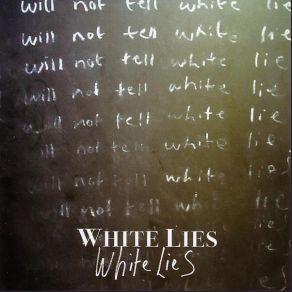 will not tell white lie
will not tell white lie
will not tell white lie
will not tell white lie
will not tell white lie
will not tell white lie
will not tell white lies
will not tell white lies
WHITE LIES
White LieS